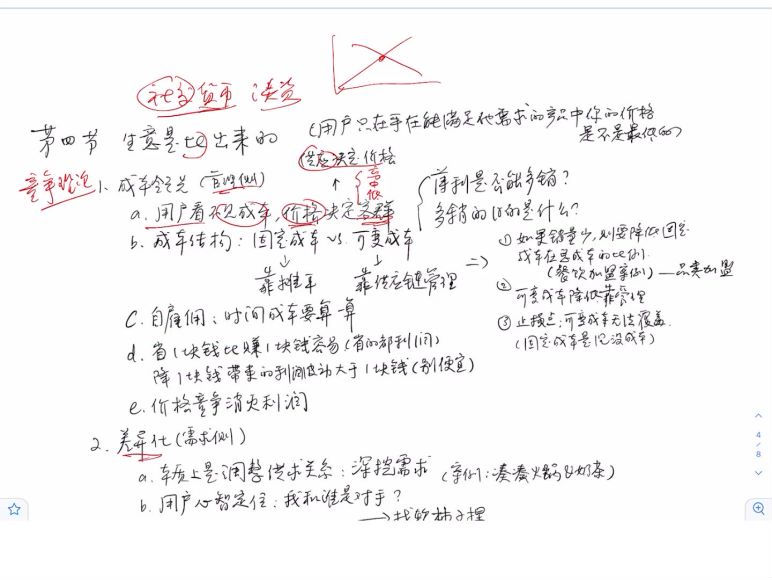 社交货币
第四节 生意是比出来的
(用户只在乎在能满足他需求的产品中你的价格
是不是最低的)
供应决定价格
竞争理论
1. 成本领先(管理侧)
高
中
低
a. 用户看不见成本,价格决定客群
薄利是否能多销?
多销的目的是什么?
b. 成本结构: 固定成本 vs. 可变成本
靠摊平
靠供应链管理
① 如果销量少,则要降低固定
成本在总成本的比例.
(餐饮加盟案例)——品类加盟
② 可变成本降低靠管理
③ 止损点:可变成本无法覆盖.
(固定成本是沉没成本)
C. 自雇佣: 时间成本要算一算
d. 省1块钱比赚1块钱容易(省的都利润)
降1块钱带来的利润波动大于1块钱(别便宜)
e. 价格竞争消灭利润
2. 差异化(需求侧)
a. 本质上是调整供求关系: 深挖需求 (案例:凑凑火锅&奶茶)
b. 用户心智定位: 我和谁是对手?
4
/
8